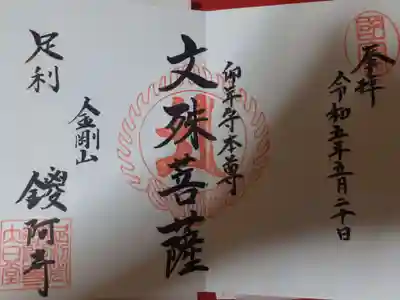 奉拝
令和五年五月二十日
卯年守本尊
文殊菩薩
金剛山
足利 鑁阿寺